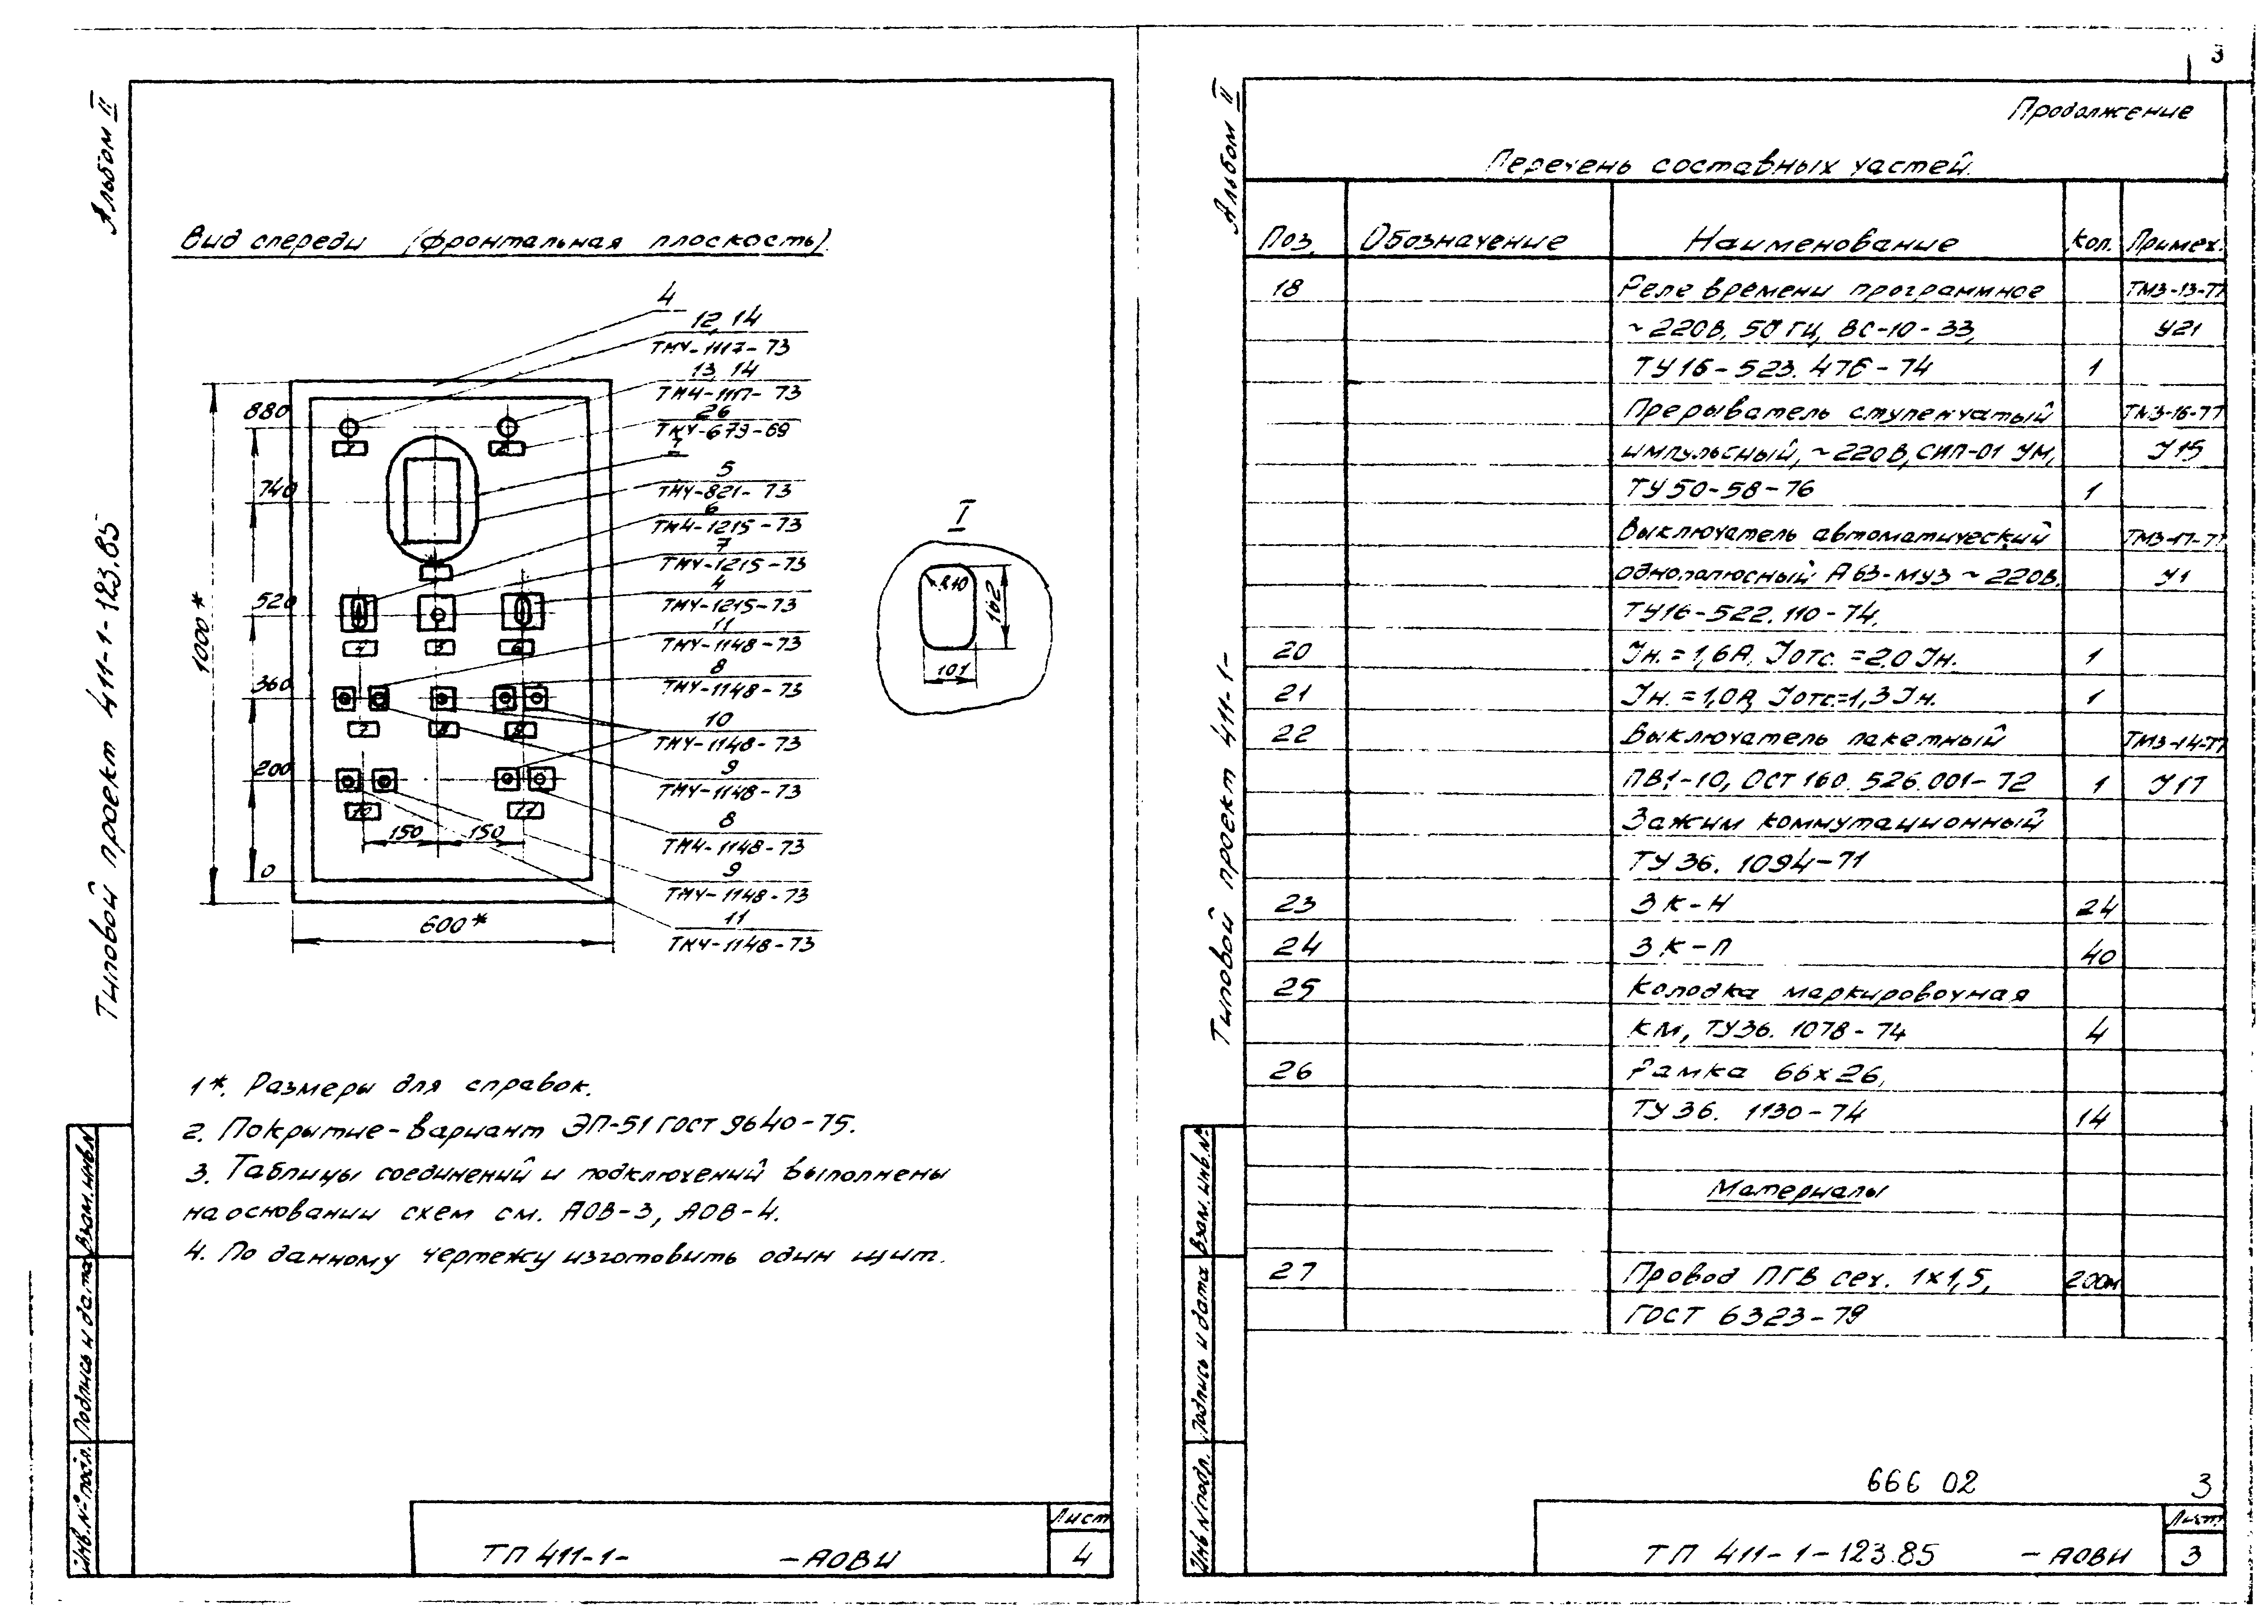 Альбом II
Типовой проект 411-1-123.85
Вид спереди (фронтальная плоскость).
4
12, 14
ТМ4-1117-73
13, 14
ТМ4-1117-73
26
ТК4-679-69
I
5
ТМ4-821-73
6
ТМ4-1215-73
7
ТМ4-1215-73
4
ТМ4-1215-73
11
ТМ4-1148-73
8
ТМ4-1148-73
10
ТМ4-1148-73
9
ТМ4-1148-73
8
ТМ4-1148-73
9
ТМ4-1148-73
11
ТМ4-1148-73
880
740
520
360
200
0
1000*
600*
150 150
I
R40
162
101
1*. Размеры для справок.
2. Покрытие-вариант ЭП-51 ГОСТ 9640-75.
3. Таблицы соединений и подключений выполнены
на основании схем см. АОВ-3, АОВ-4.
4. По данному чертежу изготовить один щит.
Взам. инв. N
Подпись и дата
Инв. N° подл.
ТП 411-1- -АОВИ
Лист
4
3
Альбом II
Типовой проект 411-1-
Продолжение
Перечень составных частей.
Поз. Обозначение Наименование Кол. Примеч.
18 Реле времени программное ТМ3-13-77
~220В, 50 Гц, ВС-10-33, У21
ТУ16-523.476-74 1
Прерыватель ступенчатый ТМ3-16-77
импульсный, ~220В, СИП-01 УМ, У15
ТУ50-58-76 1
Выключатель автоматический ТМ3-17-77
однополюсный А63-МУ3 ~220В. У1
ТУ16-522.110-74.
20 Iн. = 1,6А, Iотс. = 2.0 Iн. 1
21 Iн. = 1,0А, Iотс. = 1,3 Iн. 1
22 Выключатель пакетный ТМ3-14-77
ПВ1-10, ОСТ 160.526.001-72 1 У17
Зажим коммутационный
ТУ 36. 1094-71
23 ЗК-Н 24
24 ЗК-П 40
25 Колодка маркировочная
КМ, ТУ36. 1078-74 4
26 Рамка 66х26,
ТУ 36. 1130-74 14
Материалы
27 Провод ПГВ сеч. 1х1,5, 200м
ГОСТ 6323-79
Взам. инв. N°
Подпись и дата
Инв. N подл.
666 02 3
ТП 411-1-123.85 -АОВИ
Лист
3